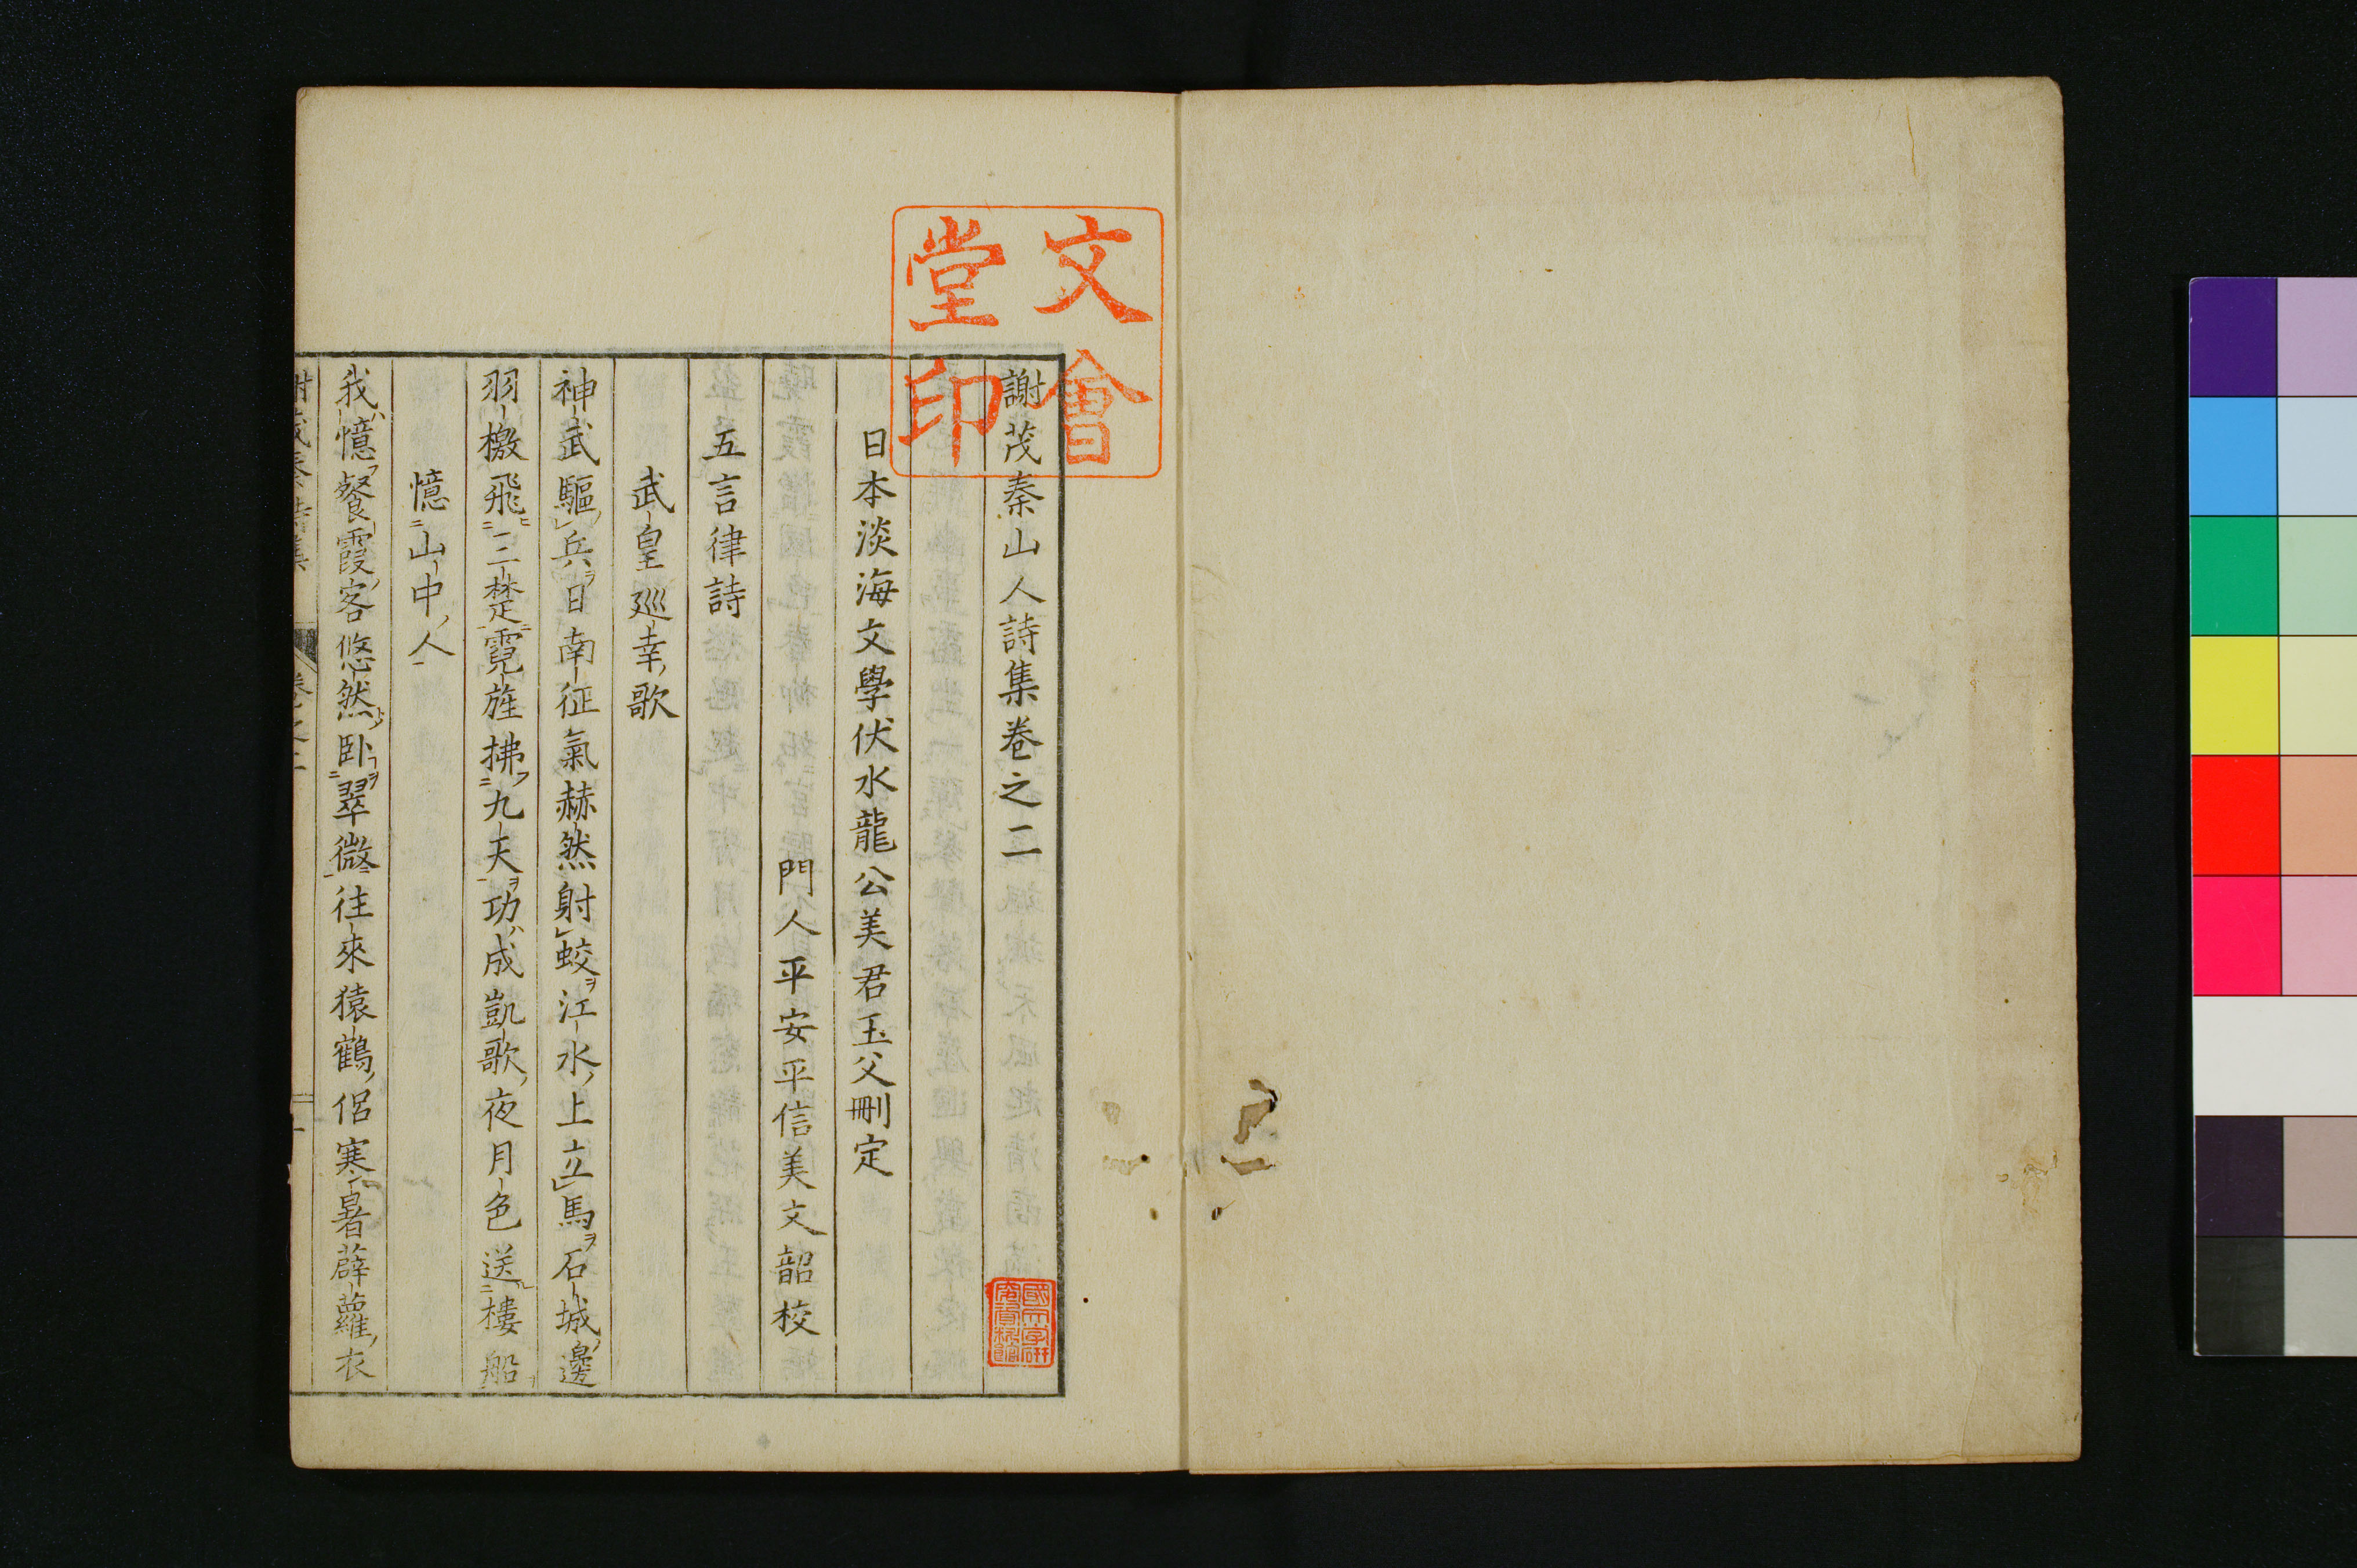 文會
堂印
謝茂秦山人詩集卷之二
日本淡海文學伏水龍公美君玉父刪定
門人平安平信美文韶校
五言律詩
武皇巡幸歌
神武驅兵日南征氣赫然射蛟江水上立馬石城邊
羽檄飛二楚霓旌拂九天功成凱歌夜月色送樓船
憶山中人
我憶餐霞客悠然臥翠微往來猿鶴侶寒暑薜蘿衣